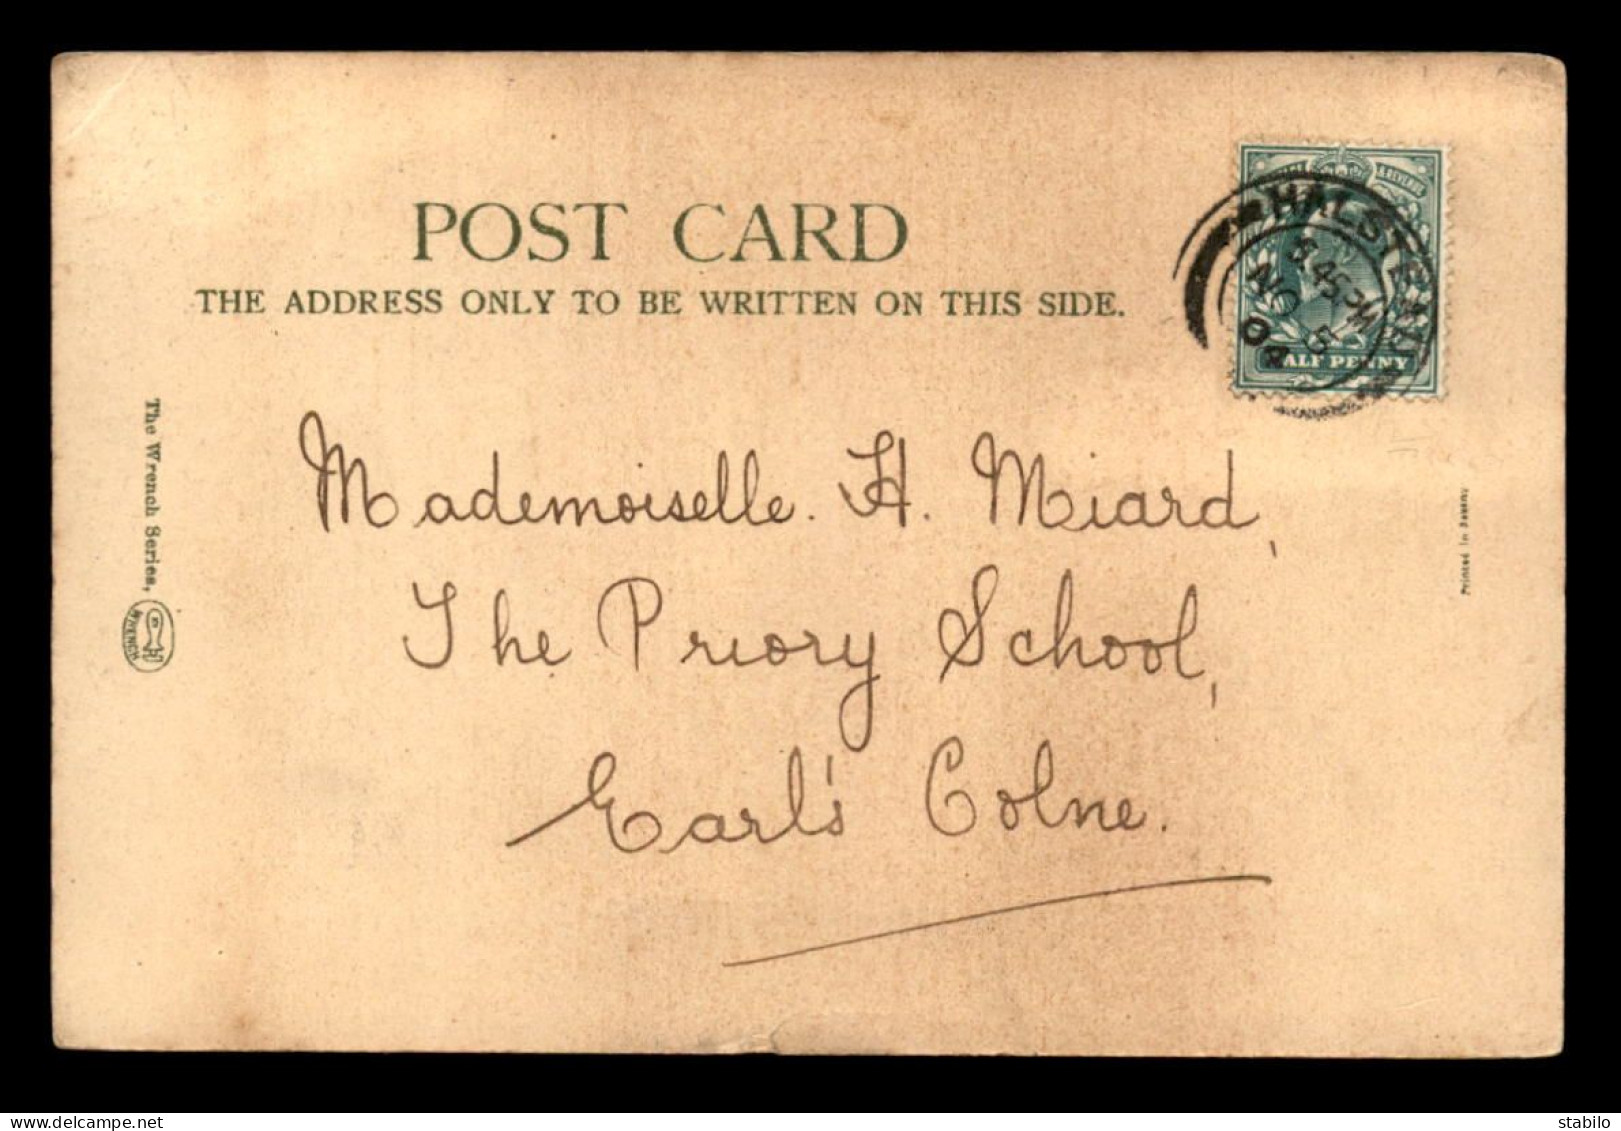 POST CARD
THE ADDRESS ONLY TO BE WRITTEN ON THIS SIDE.
& REVENUE
HALSTEAD
3.45 PM
NO 5
04
HALF PENNY
The Wrench Series,
WRENCH
Mademoiselle. H. Miard,
The Priory School,
Earl's Colne.
Printed in Saxony
delcampe.net
stabilo